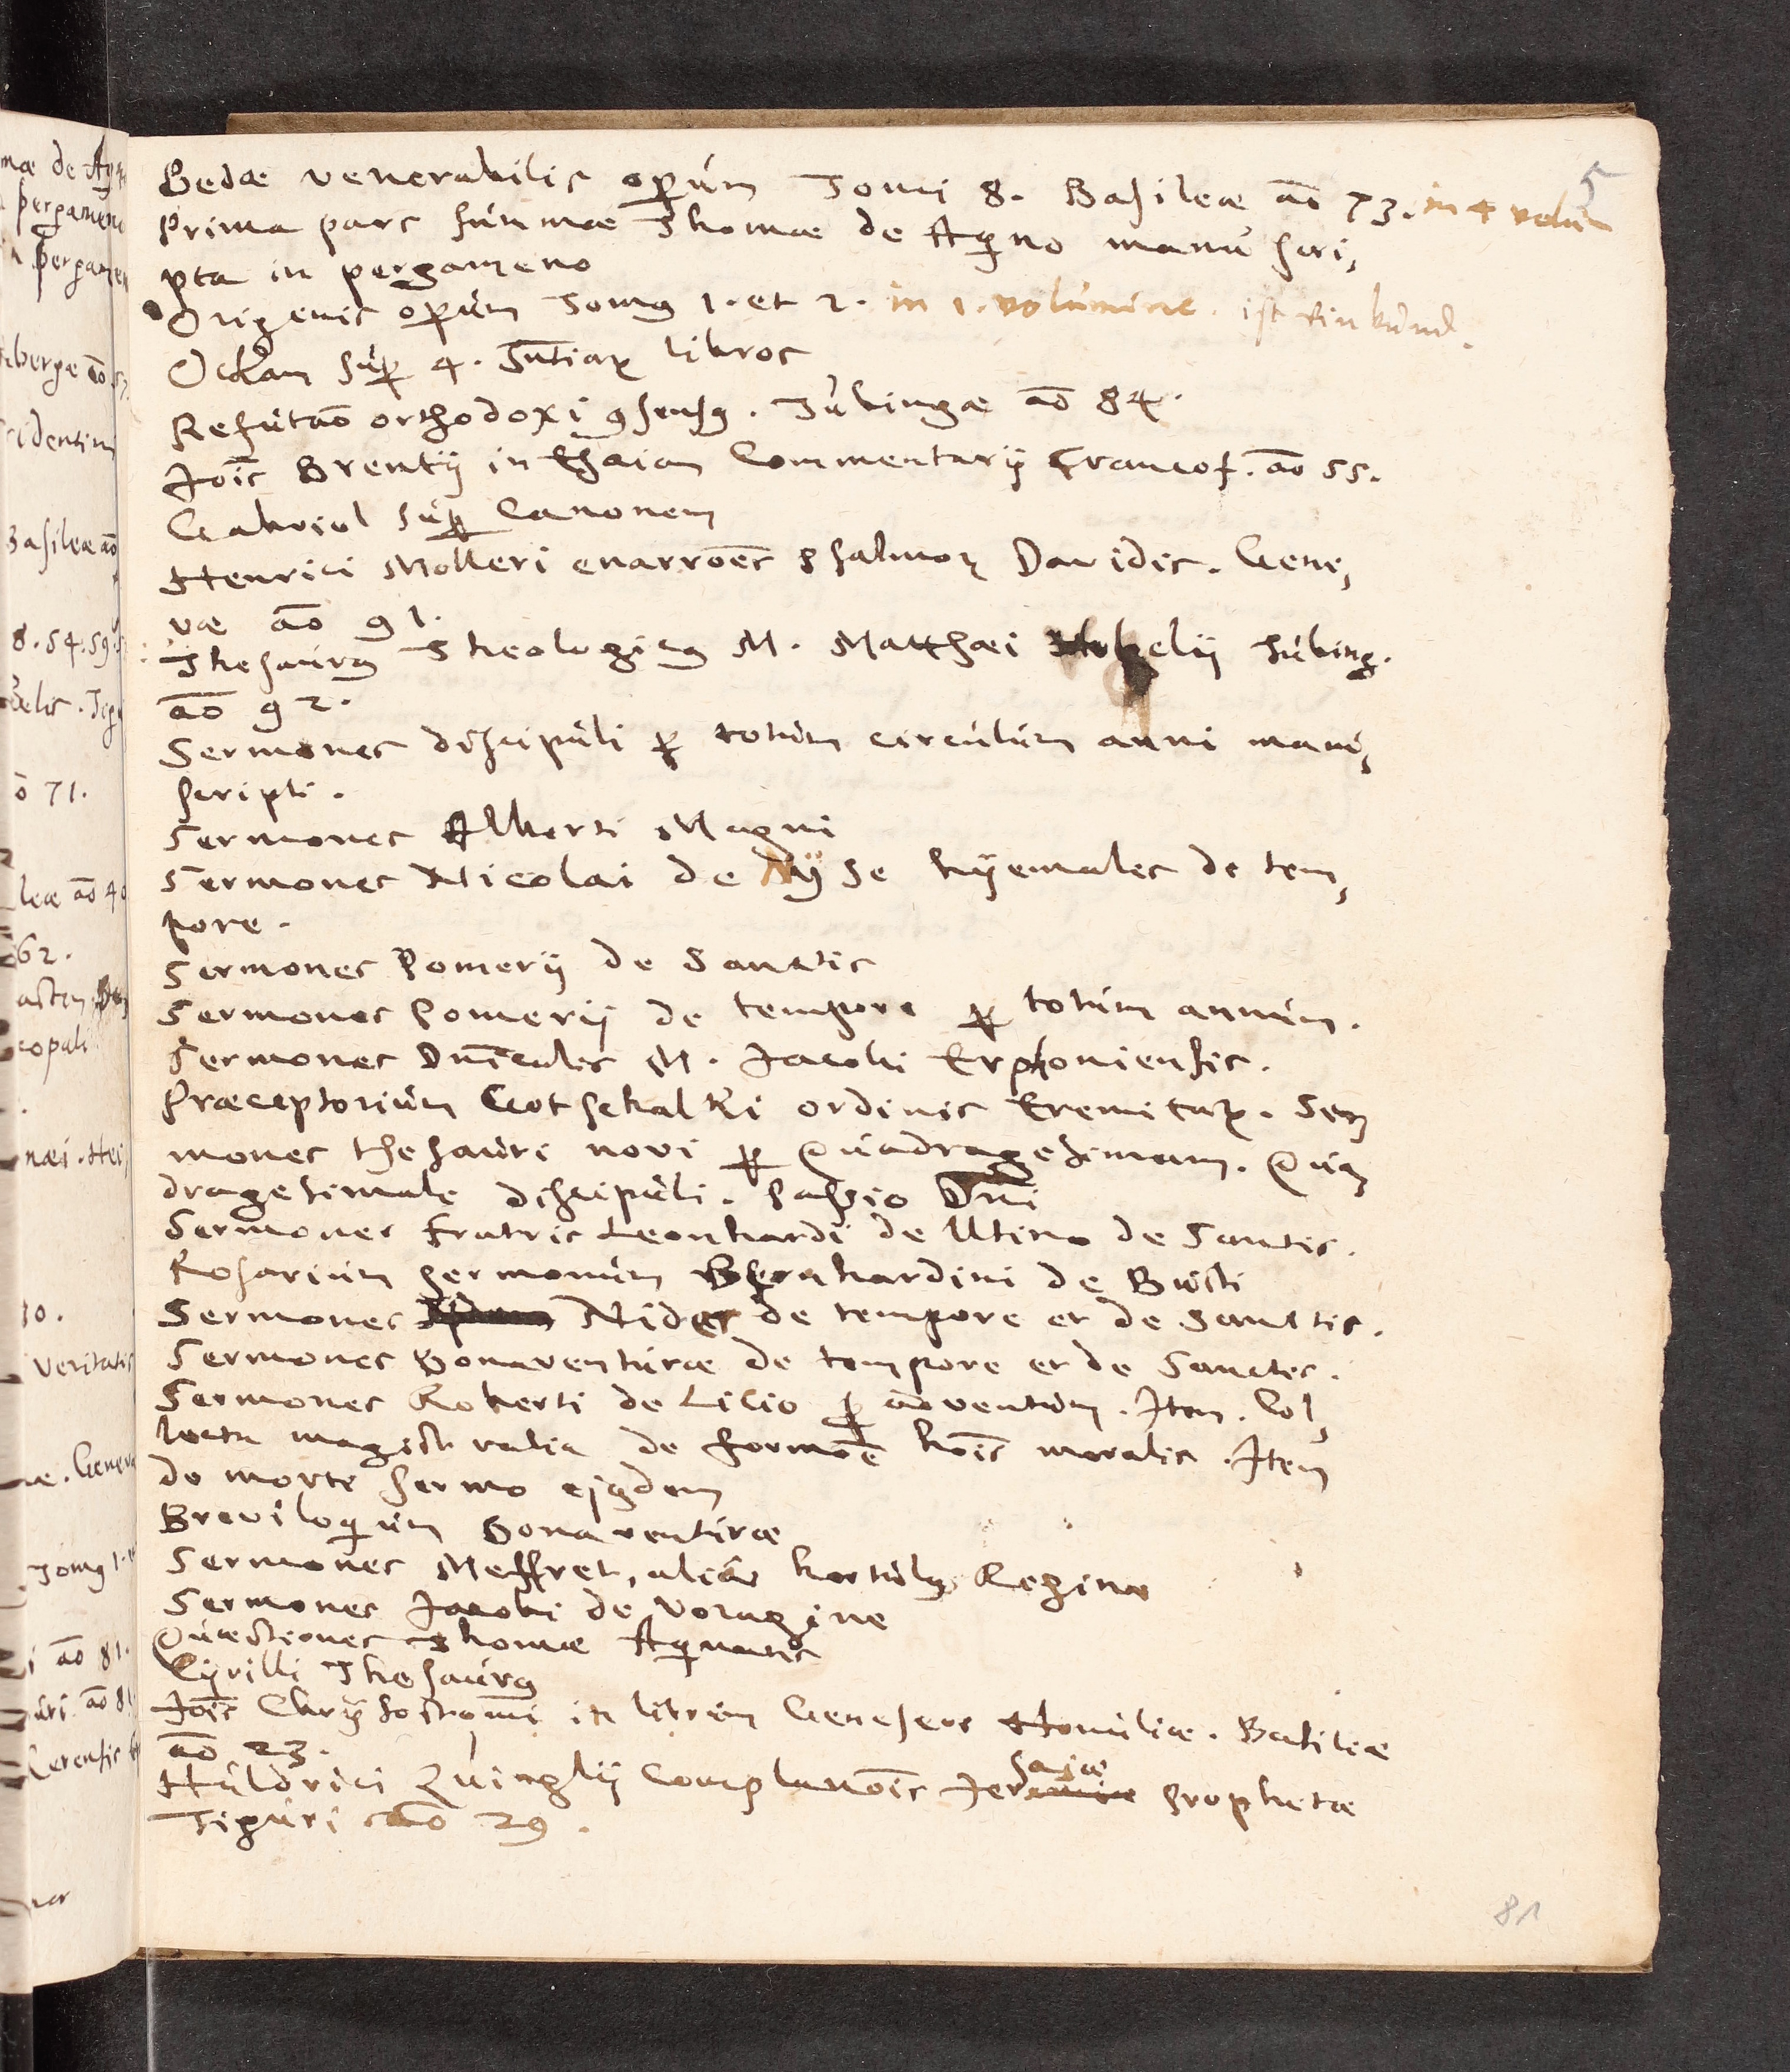 5
Bedæ venerabilis operum Tomi 8. Basileæ ao 73. in 4 volum
Prima pars summæ Thomæ de Aquino manu scri,
pta in pergameno
Origenis operum Tomus 1. et 2. in 1. volumine. ist ein bund.
Ockam super 4. Sententiarum libros
Refutao orthodoxi consensus. Tubingæ ao 84.
Jois Brentij in Esaiam Commentarij Francof. ao 55.
Gabriel super Canonem
Henrici Molleri enarroes psalmorum Davidis. Gene,
væ ao 91.
Thesaurus Theologicus M. Matthæi Vogelij Tubing.
ao 92.
Sermones discipuli per totum circulum anni manu,
scripti.
Sermones Alberti Magni
Sermones Nicolai de Nyse hyemales de tem,
pore.
Sermones Pomerij de Sanctis
Sermones Pomerij de tempore per totum annum.
Sermones Dnicales M. Jacobi Erphoniensis.
Præceptorium Gotschalki ordinis Eremitarum. Ser,
mones thesauri novi per Quadragesimam. Qua,
dragesimale discipuli. Passio Dni
Sermones fratris Leonhardi de Utino de Sanctis.
Rosarium sermonum Bernhardini de Busti
Sermones Nider de tempore et de Sanctis.
Sermones Bonaventuræ de tempore et de Sanctis.
Sermones Roberti de Licio per adventum. Item. Col,
lecta magistralia de formoe hois moralis. Item
de morte sermo ejusdem
Breviloquium Bonaventuræ
Sermones Meffret, alias hortulus Reginæ
Sermones Jacobi de Voragine
Quæstiones Thomæ Aquinatis
Cyrilli Thesaurus
Jois Chrysostomi in librum Geneseos Homiliæ. Basileæ
ao 23.
saiæ
Huldrici Zuinglij Complanois Jeremiæ Prophetæ
Tiguri ao 29.
81